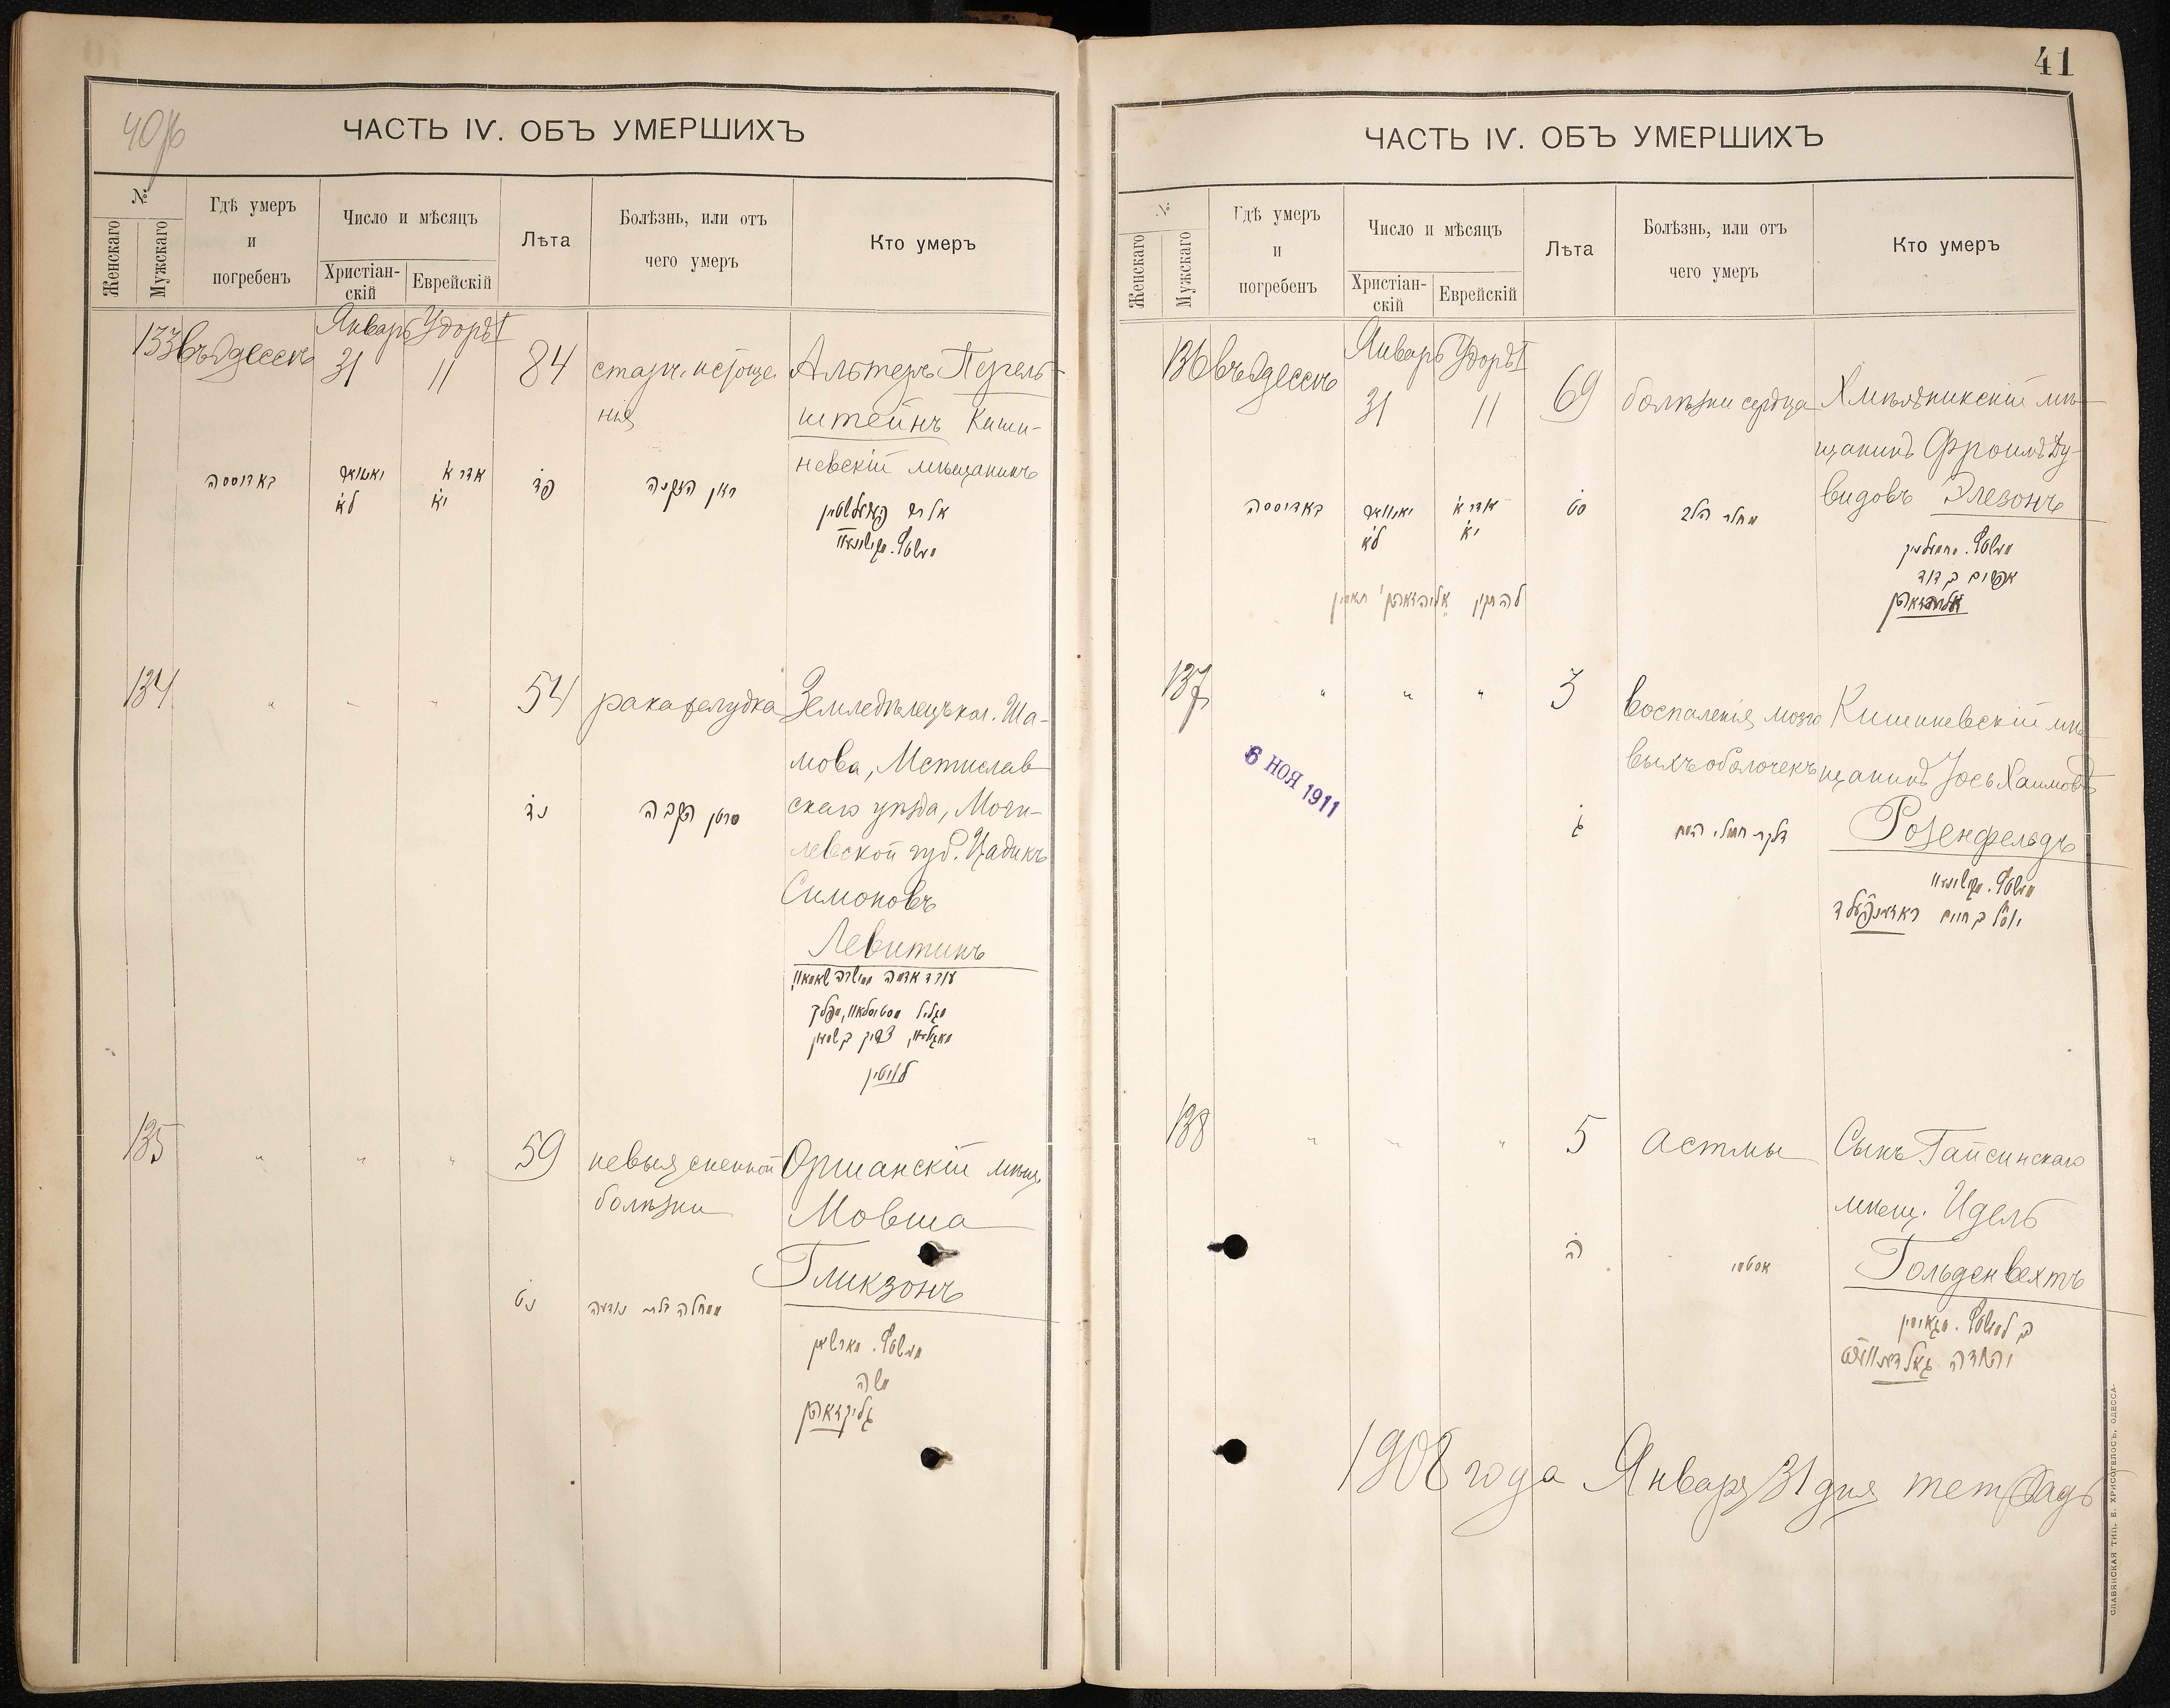 40 об
ЧАСТЬ IV. ОБЪ УМЕРШИХЪ
№
Женскаго
Мужскаго
Гдѣ умеръ
и
погребенъ
Число и мѣсяцъ
Христіан-
скій
Еврейскій
Лѣта
Болѣзнь, или отъ
чего умеръ
Кто умеръ
133 въ Одессѣ
Январь
31
Удоръ I
11
84
старч. истоще
нія
Альтеръ Перель-
штейнъ Киши-
невскій мѣщанинъ
באדוססה
יאנואר
לא
אדר א
יא
פד
134
"
"
"
54
рака желудка
Земледѣлецъ кол. Ша-
мова, Мстислав
скаго уѣзда, Моги-
левской губ. Цадикъ
Симоновъ
Левитинъ
נד
סרטן הקבה
לוויטין
135
"
"
"
59
невыясненной
болѣзни
Оршанскій мѣщ.
Мовша
Гликзонъ
נט
משה
גליקזאהן
41
ЧАСТЬ IV. ОБЪ УМЕРШИХЪ
№
Женскаго
Мужскаго
Гдѣ умеръ
и
погребенъ
Число и мѣсяцъ
Христіан-
скій
Еврейскій
Лѣта
Болѣзнь, или отъ
чего умеръ
Кто умеръ
136 въ Одессѣ
Январь
31
Удоръ I
11
69
болѣзни сердца
Хмѣльникскій мѣ-
щанинъ Фроимъ Ду-
видовъ Элезонъ
באדיססה
יאנואר
לא
אדר א
יא
סט
מחלת הלב
אפרים ב דוד
137
"
"
"
3
воспаленія мозго
выхъ оболочекъ
Кишиневскій мѣ
щанинъ Іось Хаимовъ
Розенфельдъ
6 НОЯ 1911
ג
ב חיים ראזענפעלד
138
"
"
"
5
астмы
Сынъ Гайсинскаго
мѣщ. Идель
Гольденвехтъ
ה
אסטמי
1908 года Января 31 дня тетрадь
СЛАВЯНСКАЯ ТИП. Е. ХРИСОГЕЛОСЪ, ОДЕССА.